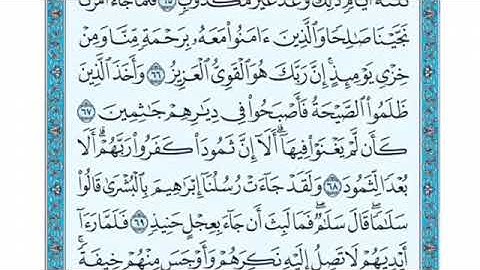 ثَلَٰثَةَ أَيَّامٖۖ ذَٰلِكَ وَعۡدٌ غَيۡرُ مَكۡذُوبٖ ٦٥ فَلَمَّا جَآءَ أَمۡرُنَا
نَجَّيۡنَا صَٰلِحٗا وَٱلَّذِينَ ءَامَنُواْ مَعَهُۥ بِرَحۡمَةٖ مِّنَّا وَمِنۡ
خِزۡيِ يَوۡمِئِذٍۚ إِنَّ رَبَّكَ هُوَ ٱلۡقَوِيُّ ٱلۡعَزِيزُ ٦٦ وَأَخَذَ ٱلَّذِينَ
ظَلَمُواْ ٱلصَّيۡحَةُ فَأَصۡبَحُواْ فِي دِيَٰرِهِمۡ جَٰثِمِينَ ٦٧
كَأَن لَّمۡ يَغۡنَوۡاْ فِيهَآۗ أَلَآ إِنَّ ثَمُودَاْ كَفَرُواْ رَبَّهُمۡۗ أَلَا
بُعۡدٗا لِّثَمُودَ ٦٨ وَلَقَدۡ جَآءَتۡ رُسُلُنَآ إِبۡرَٰهِيمَ بِٱلۡبُشۡرَىٰ قَالُواْ
سَلَٰمٗاۖ قَالَ سَلَٰمٞۖ فَمَا لَبِثَ أَن جَآءَ بِعِجۡلٍ حَنِيذٖ ٦٩ فَلَمَّا رَءَآ
أَيۡدِيَهُمۡ لَا تَصِلُ إِلَيۡهِ نَكِرَهُمۡ وَأَوۡجَسَ مِنۡهُمۡ خِيفَةٗۚ